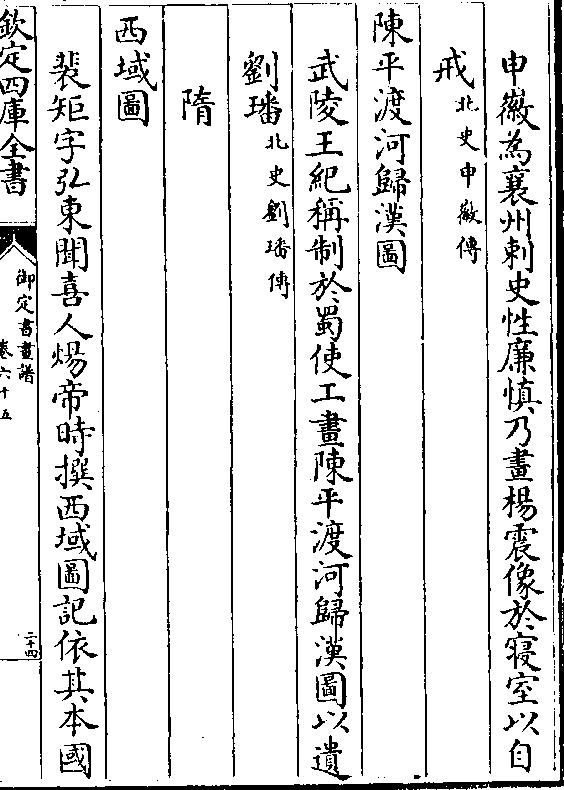 申徽為襄州刺史性廉慎乃畫楊震像於寢室以自
戒北史申徽傳
陳平渡河歸漢圖
武陵王紀稱制於蜀使工畫陳平渡河歸漢圖以遺
劉璠北史劉璠傳
隋
西域圖
裴矩字弘東聞喜人煬帝時撰西域圖記依其本國
欽定四庫全書
御定書畫譜
卷六十五
二十四